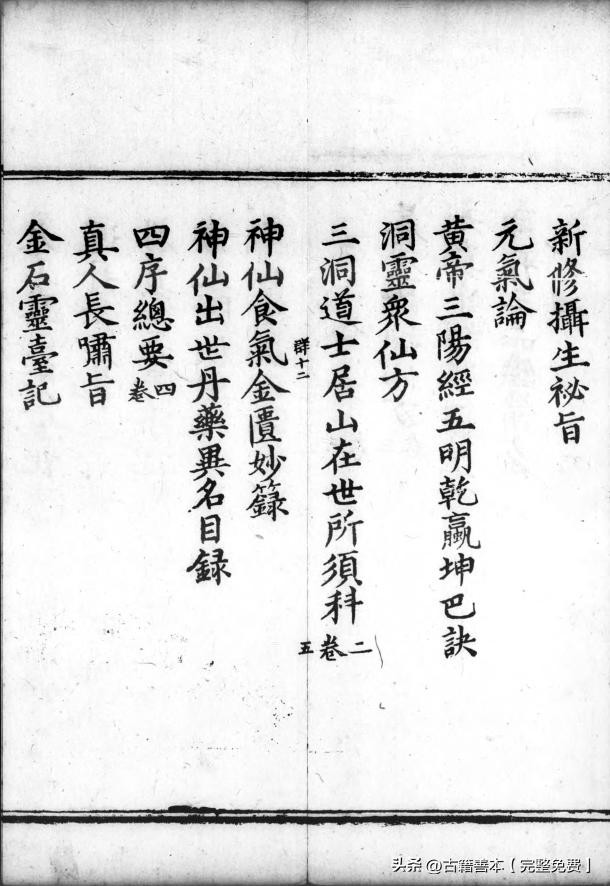 新修攝生祕旨
元氣論
黃帝三陽經五明乾羸坤巴訣
洞靈眾仙方
三洞道士居山在世所須科 二卷
群十二 五
神仙食氣金匱妙籙
神仙出世丹藥異名目錄
四序總要 四卷
真人長嘯旨
金石靈臺記
头条 @古籍善本【完整免费】